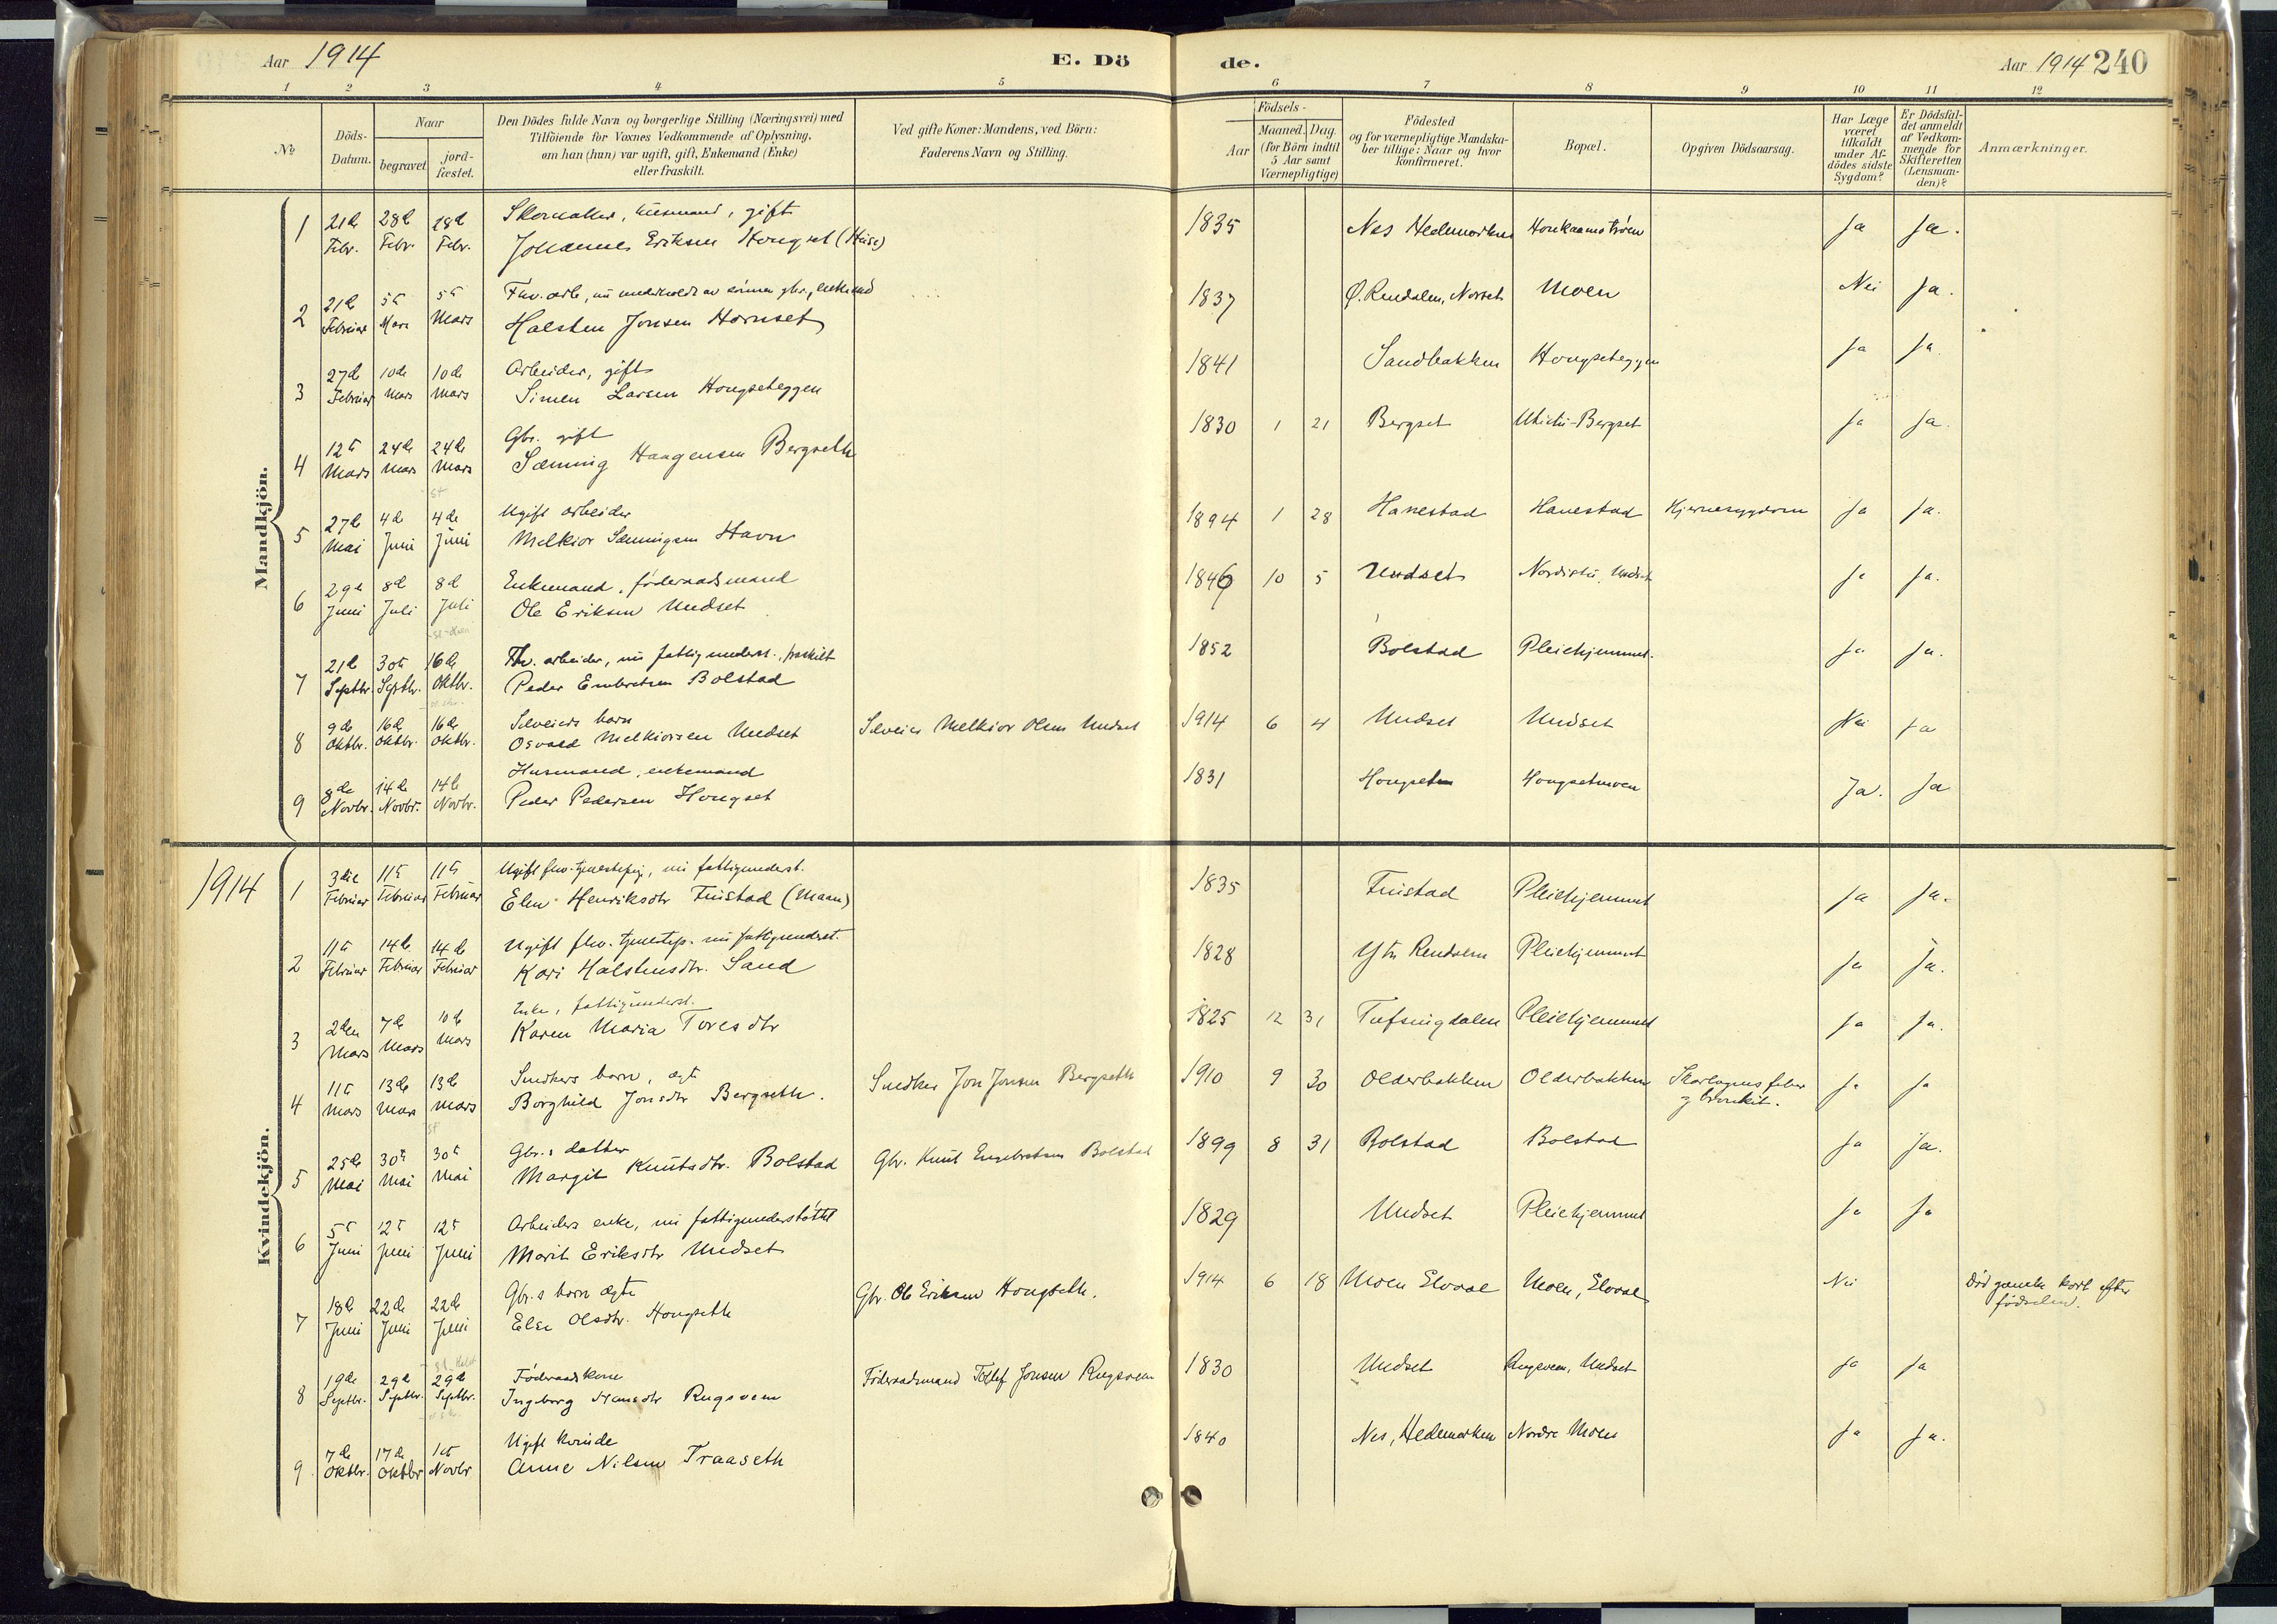 Aar 1914
E. Dö
de.
Aar 1914 240
1 2 3 4 5 6 7 8 9 10 11 12
№
Döds-
Datum.
Naar
begravet.
jord-
fæstet.
Den Dödes fulde Navn og borgerlige Stilling (Næringsvei) med
Tilföiende for Voxnes Vedkommende af Oplysning,
om han (hun) var ugift, gift, Enkemand (Enke)
eller fraskilt.
Ved gifte Koner: Mandens, ved Börn:
Faderens Navn og Stilling.
Födsels-
Aar
Maaned. Dag.
(for Börn indtil
5 Aar samt
Værnepligtige)
Födested
og for værnepligtige Mandska-
ber tillige: Naar og hvor
konfirmeret.
Bopæl.
Opgiven Dödsaarsag.
Har Læge
været
tilkaldt
under Af-
dödes sidste
Sygdom?
Er Dödsfal-
det anmeldt
af Vedkom-
mende for
Skifteretten
(Lensman-
den)?
Anmærkninger.
Mandkjön.
1 21de Febr. 28de Febr. 28de Febr. Skomaker, husmand, gift
Johannes Eriksen Hongset (Huse) 1835 Nes Hedemarken Ja Ja.
2 21de Februar 5te Mars 5te Mars Fhv. arb., nu underholdt av sönnen gbr., enkemd
Halsten Jonsen Hornset 1837 Ø. Rendalen, Moen Nei Ja.
3 27de Februar 10de Mars 10de Mars Arbeider, gift
Simen Larsen Hongseteggen 1841 Sandbakken Hongseteggen Ja Ja.
4 12te Mars 24de Mars 24de Mars Gbr. gift
Sæming Haagensen Bergseth 1830 1 21 Bergset Bergset Ja Ja.
5 27de Mai 4de Juni 4de Juni Ugift arbeider
Melkior Sæmingsen Havn 1894 1 28 Hanestad Hanestad Hjernesygdom Ja Ja.
6 29de Juni 8de Juli 8de Juli Enkemand, föderaadsmand
Ole Eriksen Undset 1846 10 5 Undset Nordistu, Undset Ja Ja.
7 21de Septbr. 30te Septbr. 16de Oktbr. Fhv. arbeider, nu fattigunderst., fraskilt
Peder Embretsen Bolstad 1852 Bolstad Pleiehjemmet. Ja Ja.
8 9de Oktbr. 16de Oktbr. 16de Oktbr. Selveiers barn
Osvald Melkiorsen Undset Selveier Melkior Olsen Undset 1914 6 4 Undset Undset Nei Ja
9 8de Novbr. 14de Novbr. 14de Novbr. Husmand, enkemand
Peder Pedersen Hongset 1831 Hongset Hongsetmoen Ja. Ja
1914
Kvindekjön.
1 3die Februar 11te Februar 11te Februar Ugift fhv. tjenestepig., nu fattigunderst.
Elen Henriksdtr Finstad (Maan) 1835 Finstad Pleiehjemmet Ja Ja.
2 11te Februar 14de Februar 14de Februar Ugift fhv. tjenestep. nu fattigunderst.
Kari Halstensdtr. Sand 1828 Ytr. Rendalen Pleiehjemmet Ja Ja.
3 2den Mars 7de Mars 10de Mars Enke, fattigunderst.
Karen Maria Toresdtr 1825 12 31 Tufsingdalen Pleiehjemmet Ja Ja.
4 11te Mars 13de Mars 13de Mars Snedkers barn, ægte
Borghild Jonsdtr Bergseth. Snedker Jon Jonsen Bergseth 1910 9 30 Olderbakken Olderbakken Skarlagensfeber
og bronkit. Ja Ja
5 25de Mai 30te Mai 30te Mai Gbr.s datter
Margit Knutsdtr. Bolstad Gbr. Knut Engebretsen Bolstad 1899 8 31 Bolstad Bolstad Ja Ja.
6 5te Juni 12te Juni 12te Juni Arbeiders enke, nu fattigunderstöttet
Marit Eriksdtr Undset 1829 Undset Pleiehjemmet Ja Ja
7 18de Juni 22de Juni 22de Juni Gbr.s barn ægte
Else Olsdtr. Hongseth Gbr. Ole Eriksen Hongseth. 1914 6 18 Moen Elvaal Moen, Elvaal Nei Död ganske kort efter
födselen.
8 19de Septbr. 29de Septbr. 29de Septbr. Föderaadskone
Ingeborg Hansdtr Rugsveen Föderaadsmand Tollef Jonsen Rugsveen 1830 Undset Rugsveen, Undset Ja Ja
9. 7de Oktbr. 17de Oktbr 1ste Novbr Ugift kvinde
Anne Nilsen Traaseth 1840 Nes, Hedemarken Nordre Moen Ja Ja.